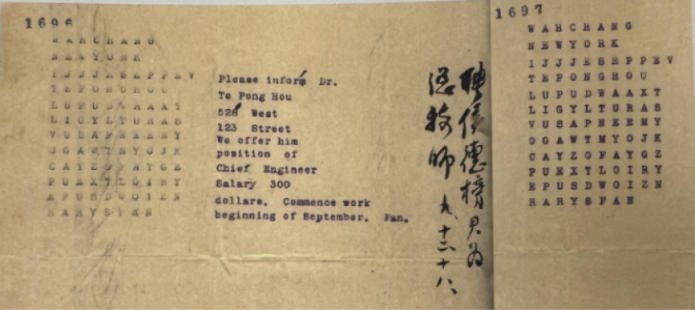 1696
WAHCHANG
NEWYORK
IJJJESEPPEV
TEPONGHOU
LUPUDWAAXT
LIGYLTURAS
VUSAPNEEMY
OGAWTMYOJK
CAYZOFAYGE
PUEXTLOIRY
EPUSDWOIZN
RARYSFAN
Please inform Dr.
Te Pong Hou
528 West
123 Street
We offer him
position of
Chief Engineer
Salary 300
dollars. Commence work
beginning of September. Fan.
聘侯德榜為
總技師 九、十二、十八
1697
WAHCHANG
NEWYORK
IJJJESEPPEV
TEPONGHOU
LUPUDWAAXT
LIGYLTURAS
VUSAPNEEMY
OGAWTMYOJK
CAYZOFAYGE
PUEXTLOIRY
EPUSDWOIZN
RARYSFAN